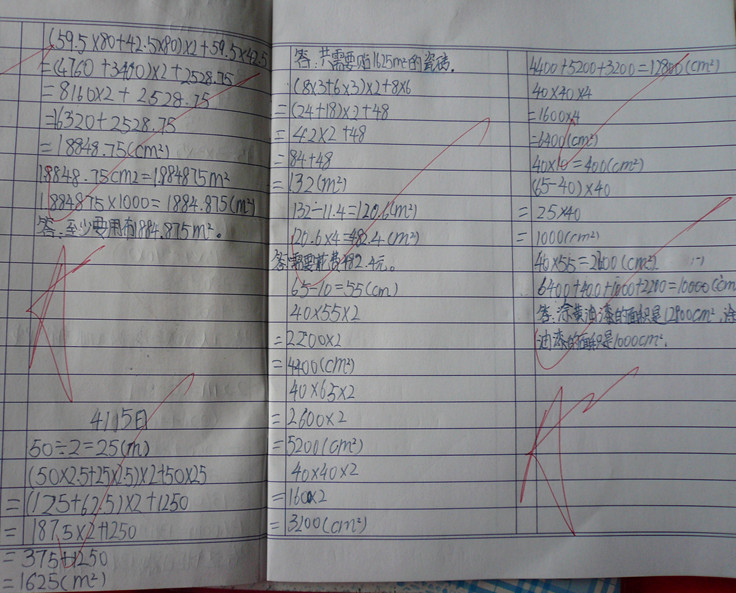 (59.5×80+42.5×80)×2+59.5×42.5
=(4760+3400)×2+2528.75
=8160×2+2528.75
=16320+2528.75
=18848.75(cm²)
18848.75cm2=1.884875m²
1.884875×1000=1884.875(m²)
答:至少要用布1884.875m²。
4月5日
50÷2=25(m)
(50×2.5+25×2.5)×2+50×25
=(125+62.5)×2+1250
=187.5×2+1250
=375+1250
=1625(m²)
答:共需要贴1625m²的瓷砖。
(8×3+6×3)×2+8×6
=(24+18)×2+48
=42×2+48
=84+48
=132(m²)
132-11.4=120.6(m²)
120.6×4=482.4(m²)
答:需要花费482.4元。
65-10=55(cm)
40×55×2
=2200×2
=4400(cm²)
40×65×2
=2600×2
=5200(cm²)
40×40×2
=1600×2
=3200(cm²)
4400+5200+3200=12800(cm²)
40×40×4
=1600×4
=6400(cm²)
40×10=400(cm²)
(65-40)×40
=25×40
=1000(cm²)
40×55=2200(cm²)
6400+400+1000+2200=10000(cm
答:涂黄油漆的面积是12800cm²,涂
油漆的面积是1000cm²。